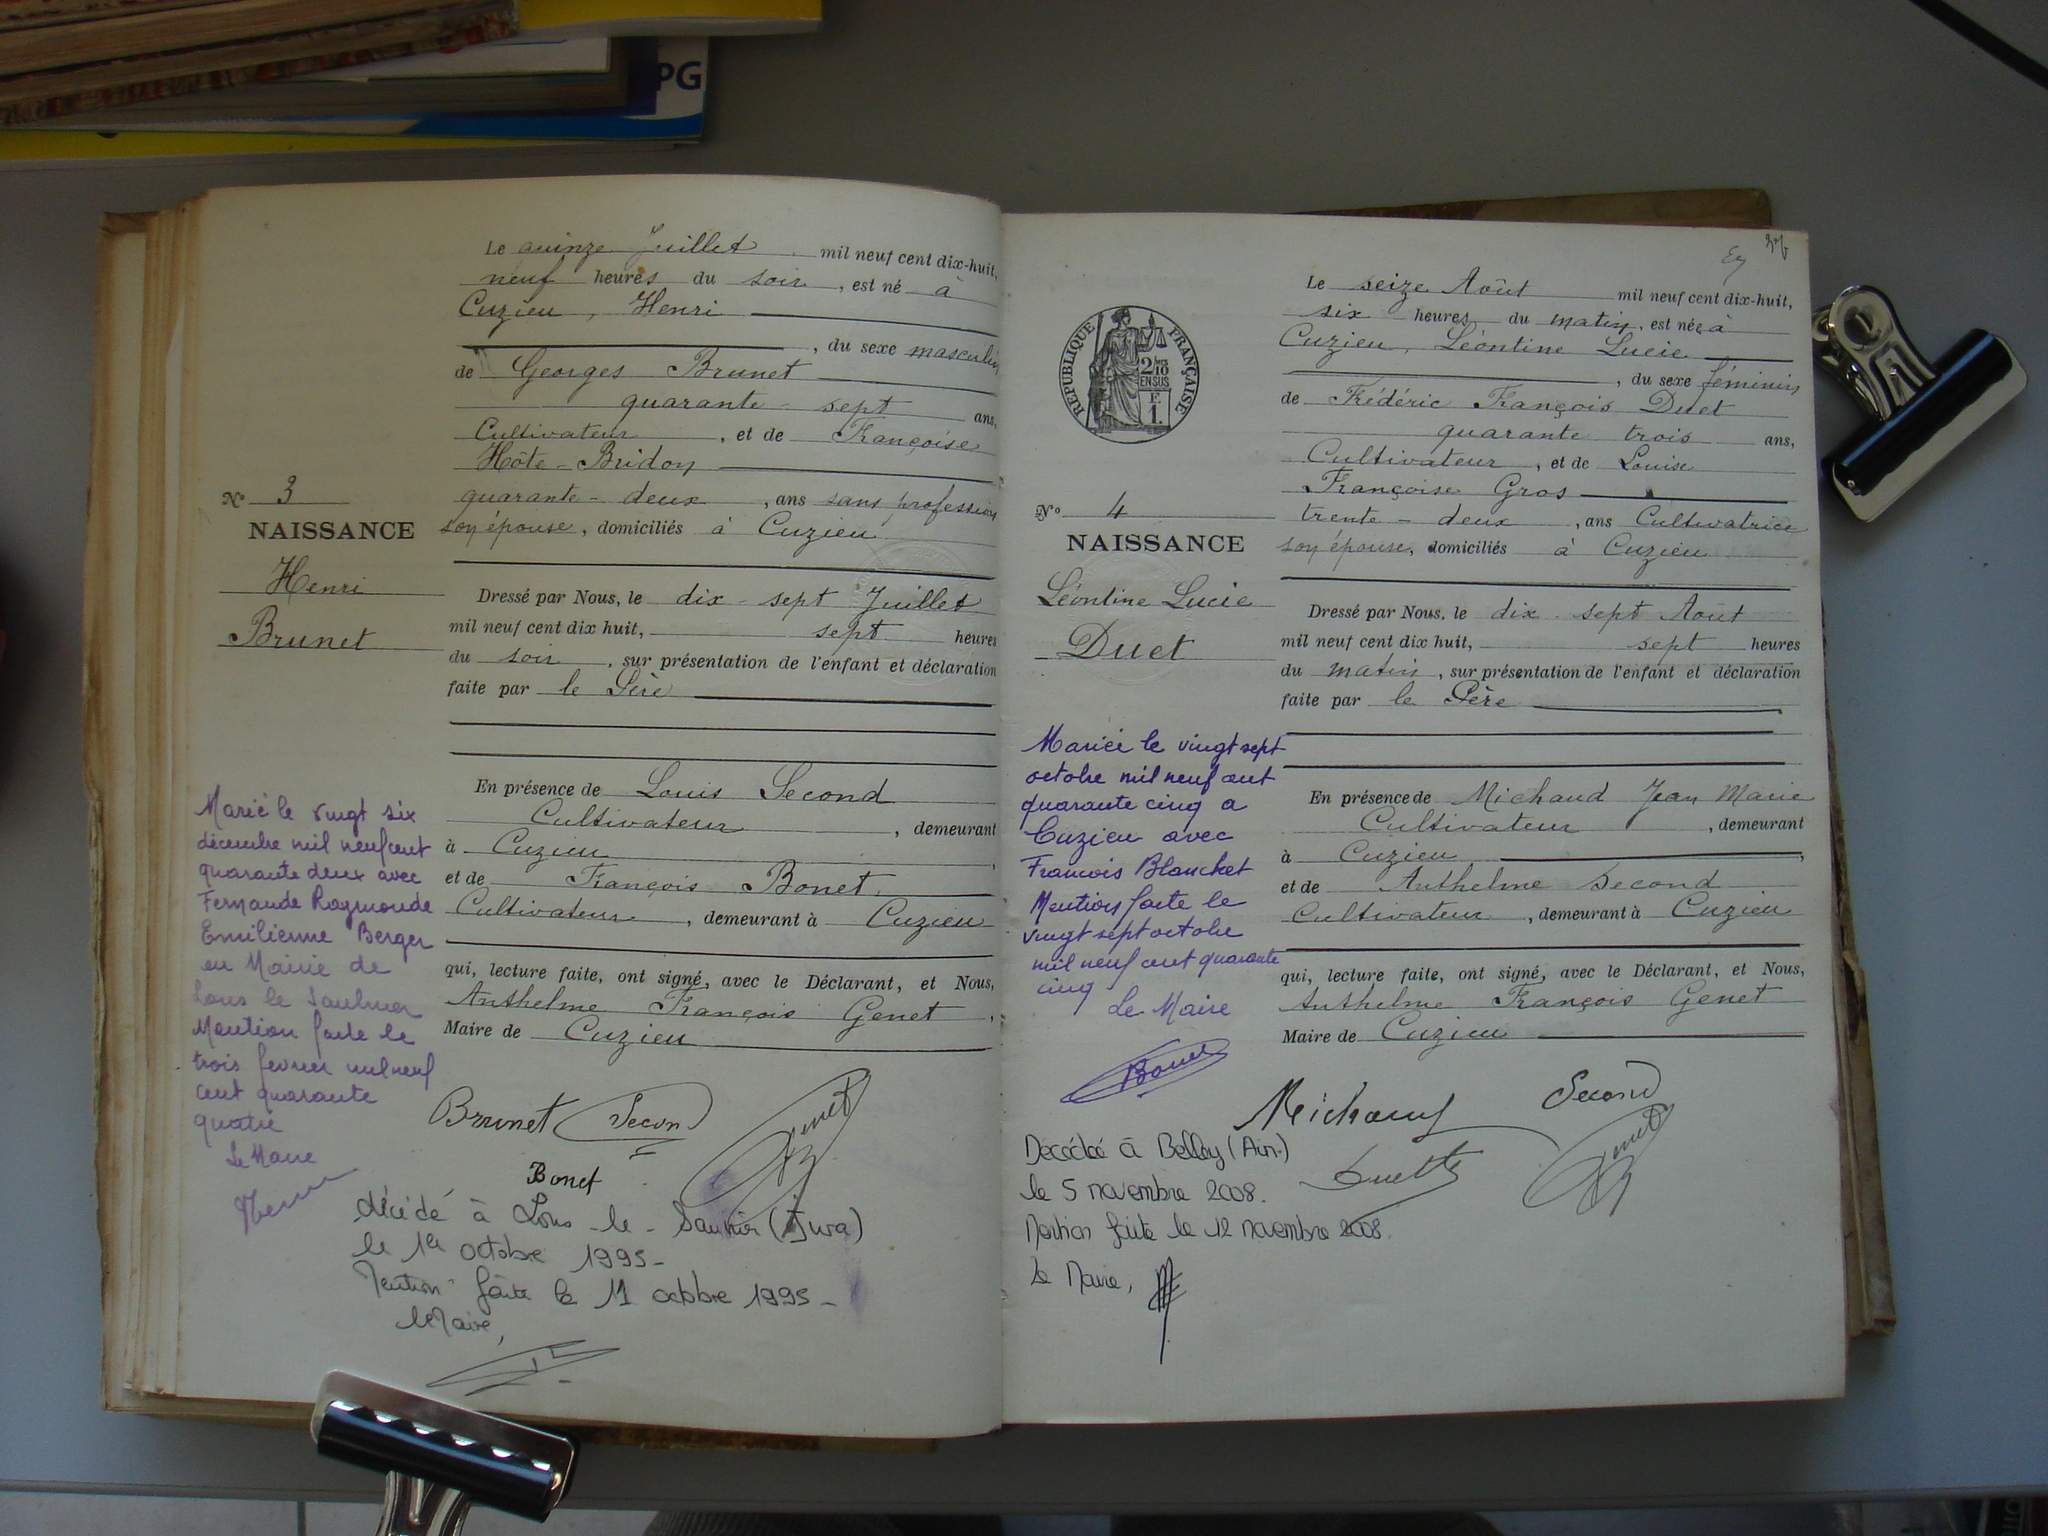 PG
Le quinze Juillet mil neuf cent dix-huit,
neuf heures du soir, est né à
Cuzieu, Henri
, du sexe masculin
de Georges Brunet
quarante-sept ans,
Cultivateur, et de Françoise
Hôte-Bridon
quarante-deux, ans sans profession
son épouse, domiciliés à Cuzieu
N° 3
NAISSANCE
Henri
Brunet
Dressé par Nous, le dix-sept Juillet
mil neuf cent dix huit, sept heures
du soir, sur présentation de l'enfant et déclaration
faite par le Père
En présence de Louis Second
Cultivateur, demeurant
à Cuzieu,
et de François Bonet
Cultivateur, demeurant à Cuzieu
qui, lecture faite, ont signé, avec le Déclarant, et Nous,
Anthelme François Genet,
Maire de Cuzieu
Marié le vingt six
décembre mil neuf cent
quarante deux avec
Fernande Raymonde
Emilienne Berger
en Mairie de
Lons le Saulnier
Mention faite le
trois fevrier mil neuf
cent quarante
quatre
Le Maire
Brunet Second Genet
Bonet
décédé à Lons-le-Saunier (Jura)
le 1er octobre 1995-
Mention faite le 11 octobre 1995-
le Maire,
Le seize Août mil neuf cent dix-huit,
six heures du matin, est née à
Cuzieu, Léontine Lucie
, du sexe féminin
de Frédéric François Duet
quarante trois ans,
Cultivateur, et de Louise
Françoise Gros
trente-deux, ans Cultivatrice
son épouse, domiciliés à Cuzieu
REPUBLIQUE FRANÇAISE
2 10
EN SUS
E
1.
N° 4
NAISSANCE
Léontine Lucie
Duet
Dressé par Nous, le dix-sept Août
mil neuf cent dix huit, sept heures
du matin, sur présentation de l'enfant et déclaration
faite par le Père
En présence de Michaud Jean Marie
Cultivateur, demeurant
à Cuzieu,
et de Anthelme Second
Cultivateur, demeurant à Cuzieu
qui, lecture faite, ont signé, avec le Déclarant, et Nous,
Anthelme François Genet
Maire de Cuzieu
Mariée le vingt sept
octobre mil neuf cent
quarante cinq a
Cuzieu avec
Francois Blanchet
Mention faite le
vingt sept octobre
mil neuf cent quarante
cinq
Le Maire
Bonet
Michaud Second
Duet Genet
Decédée à Belley (Ain.)
le 5 novembre 2008.
Mention faite le 12 novembre 2008.
Le Maire,